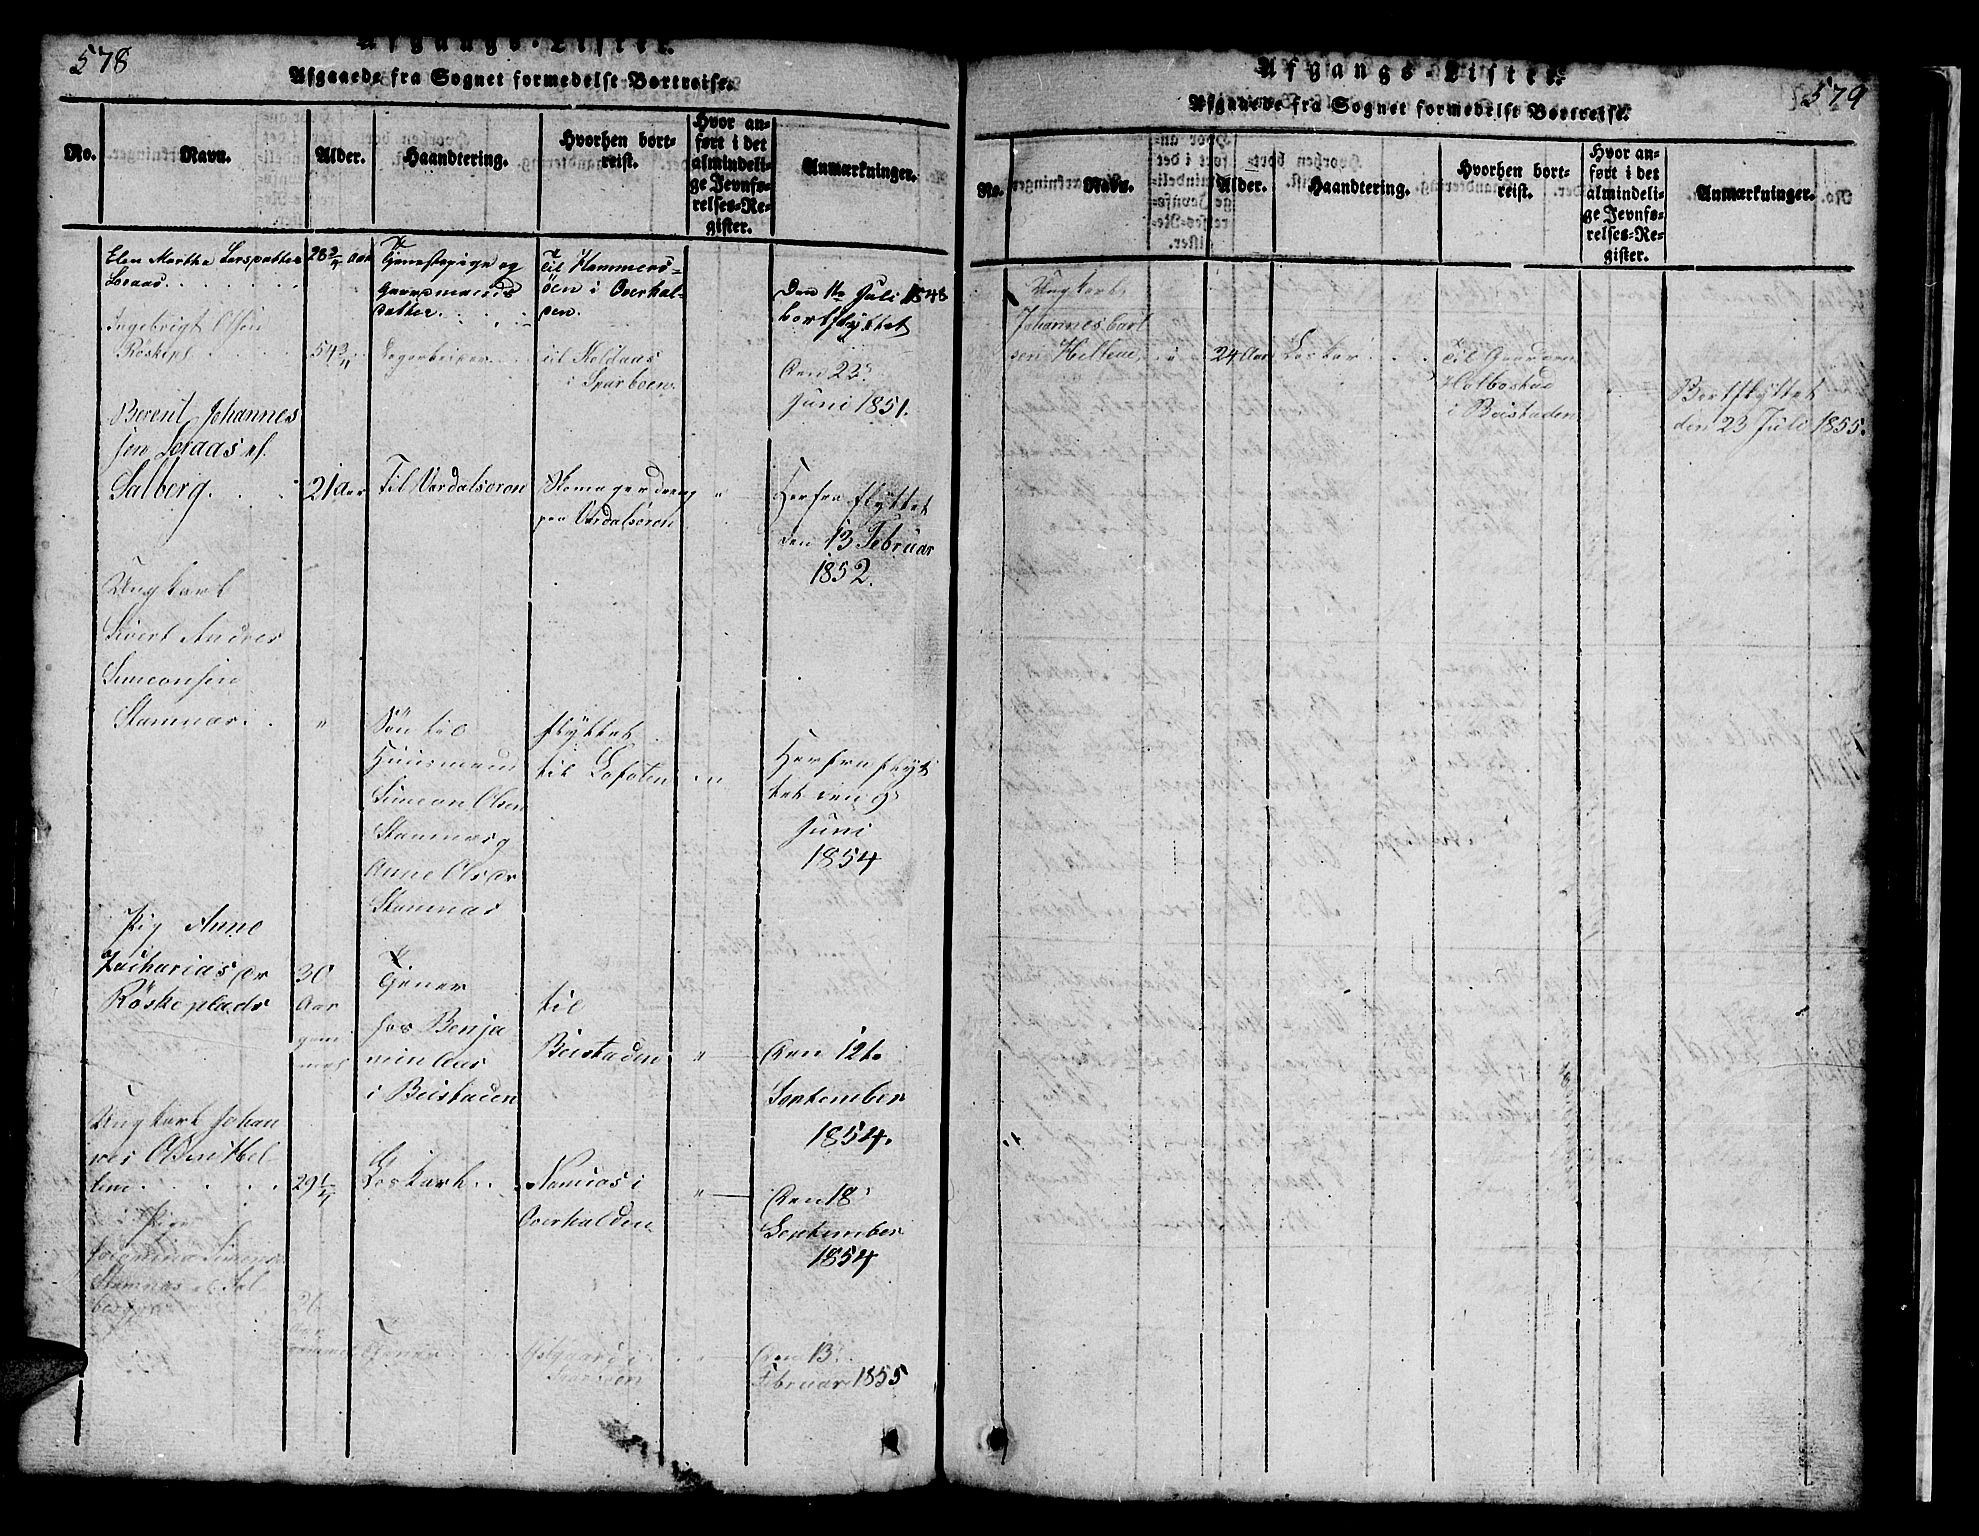 578
Afgangs-Lister.
Afgaaede fra Sognet formedelst Bortreise.
No.
Navn.
Alder.
Haandtering.
Hvorhen bort-
reist.
Hvor an-
ført i det
almindeli-
ge Jevnfø-
relses-Re-
gister.
Anmærkninger.
Elen Martha Larsdatter
28 3/4 Aar
Tjenestepige og
Gaardmands
datter
Til Hammers-
öen i Overhal-
den.
Den 1te Juli 1848
bortflyttet
Ingebrigt Olsen
Röskepl.
54
i Sparboen
Den 22
Juni 1851.
Berent Johannes
sen Leraas af
Salberg
21 Aar
Til Værdalsören
Skomagerdreng
paa Værdalsören
"
Herfra flyttet
den 13 Februar
1852.
Ungkarl
Sivert Andreas
Simeonsen
Stamnæs
"
Sön til
Huusmand
Simeon Olsen
Stamnæs og
Anne Olsdr
Stamnæs
flyttet
til Lofoten
"
Herfra flyt
tet den 9
Juni
1854
Pig Anne
Zachariasdr
Röskeplads
30
Aar
gam
mel
Tjener
hos Benja
min Aas
i Beistaden
til
Beistaden
"
Den 12te
September
1854.
Ungkarl Johan
nes Olsen Hel
lem
29 1/4
Löskarl
i
Overhalden
"
Den 18
September
1854
Pige
Stamnæs af Sal
berg
26
Aar
gammel
Tjener
"
Den 13
Februar 1855
579
Afgangs-Lister.
Afgaaede fra Sognet formedelst Bortreise.
No.
Navn.
Alder.
Haandtering.
Hvorhen bort-
reist.
Hvor an-
ført i det
almindeli-
ge Jevnfø-
relses-Re-
gister.
Anmærkninger.
Ungkarl
Johannes Carl
sen Hellem
24 Aar
Löskar
Til Gaarden
Holbostad
i Beistaden
Bortflyttet
den 23 Juli 1855.